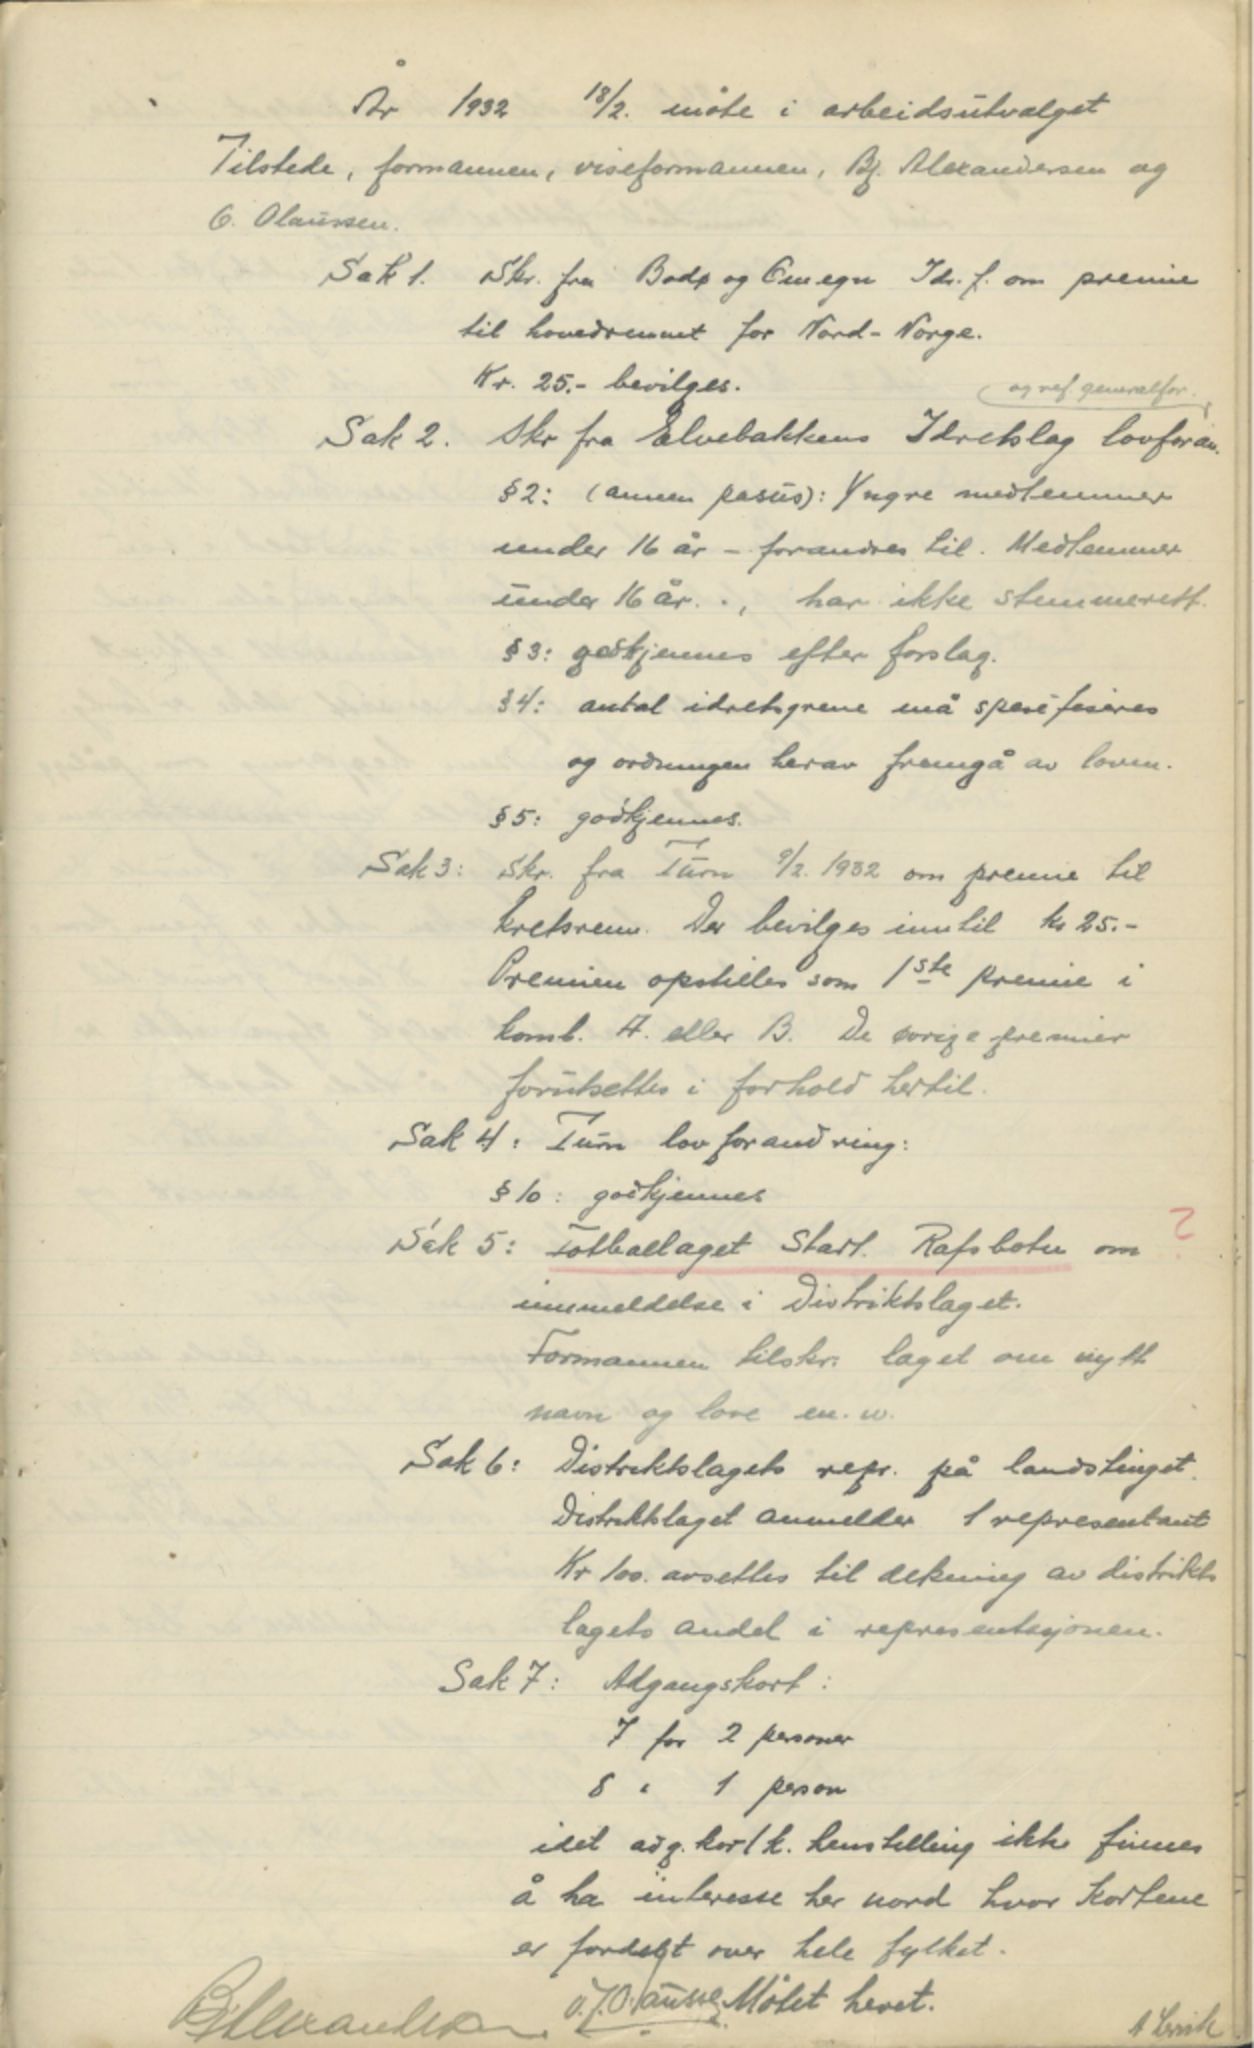 År 1932 18/2. møte i arbeidsutvalget
Tilstede, formannen, viseformannen, Bj. Alexandersen og
O. Olaussen.
Sak 1. Skr. fra Bodø og Omegn Idr. f. om premie
til hovedrennet for Nord-Norge.
Kr. 25.- bevilges.
og ref generalfor.
Sak 2. Skr fra Elvebakkens Idretslag lovforan.
§2: (annen pasus): Yngre medlemmer
under 16 år - forandres til. Medlemmer
under 16 år. ., har ikke stemmerett.
§3: godkjennes efter forslag.
§4: antal idretsgrene må spesifiseres
og ordningen herav fremgå av loven.
§5: godkjennes.
Sak 3: Skr. fra Turn 9/2. 1932 om premie til
kretsrenn. Der bevilges inntil kr 25.-
Premien opstilles som 1ste premie i
komb. A. eller B. De øvrige premier
forutsettes i forhold hertil.
Sak 4: Turn lovforandring:
§10: godkjennes
Sak 5: Fotballaget Start. Rafsbotn om ?
innmeldelse i Distriktslaget.
Formannen tilskr. laget om nytt
navn og love en. w.
Sak 6: Distriktslagets repr. på landstinget.
Distriktslaget anmelder 1 representant
Kr 100. avsettes til dekning av distrikts
lagets andel i representasjonen.
Sak 7: Adgangskort:
7 for 2 personer
8 " 1 person
idet adg. kort k. henstilling ikke finnes
å ha interesse her nord hvor kortene
er fordelt over hele fylket.
O. J. Olaussen Møtet hevet.
Bj Alexandersen